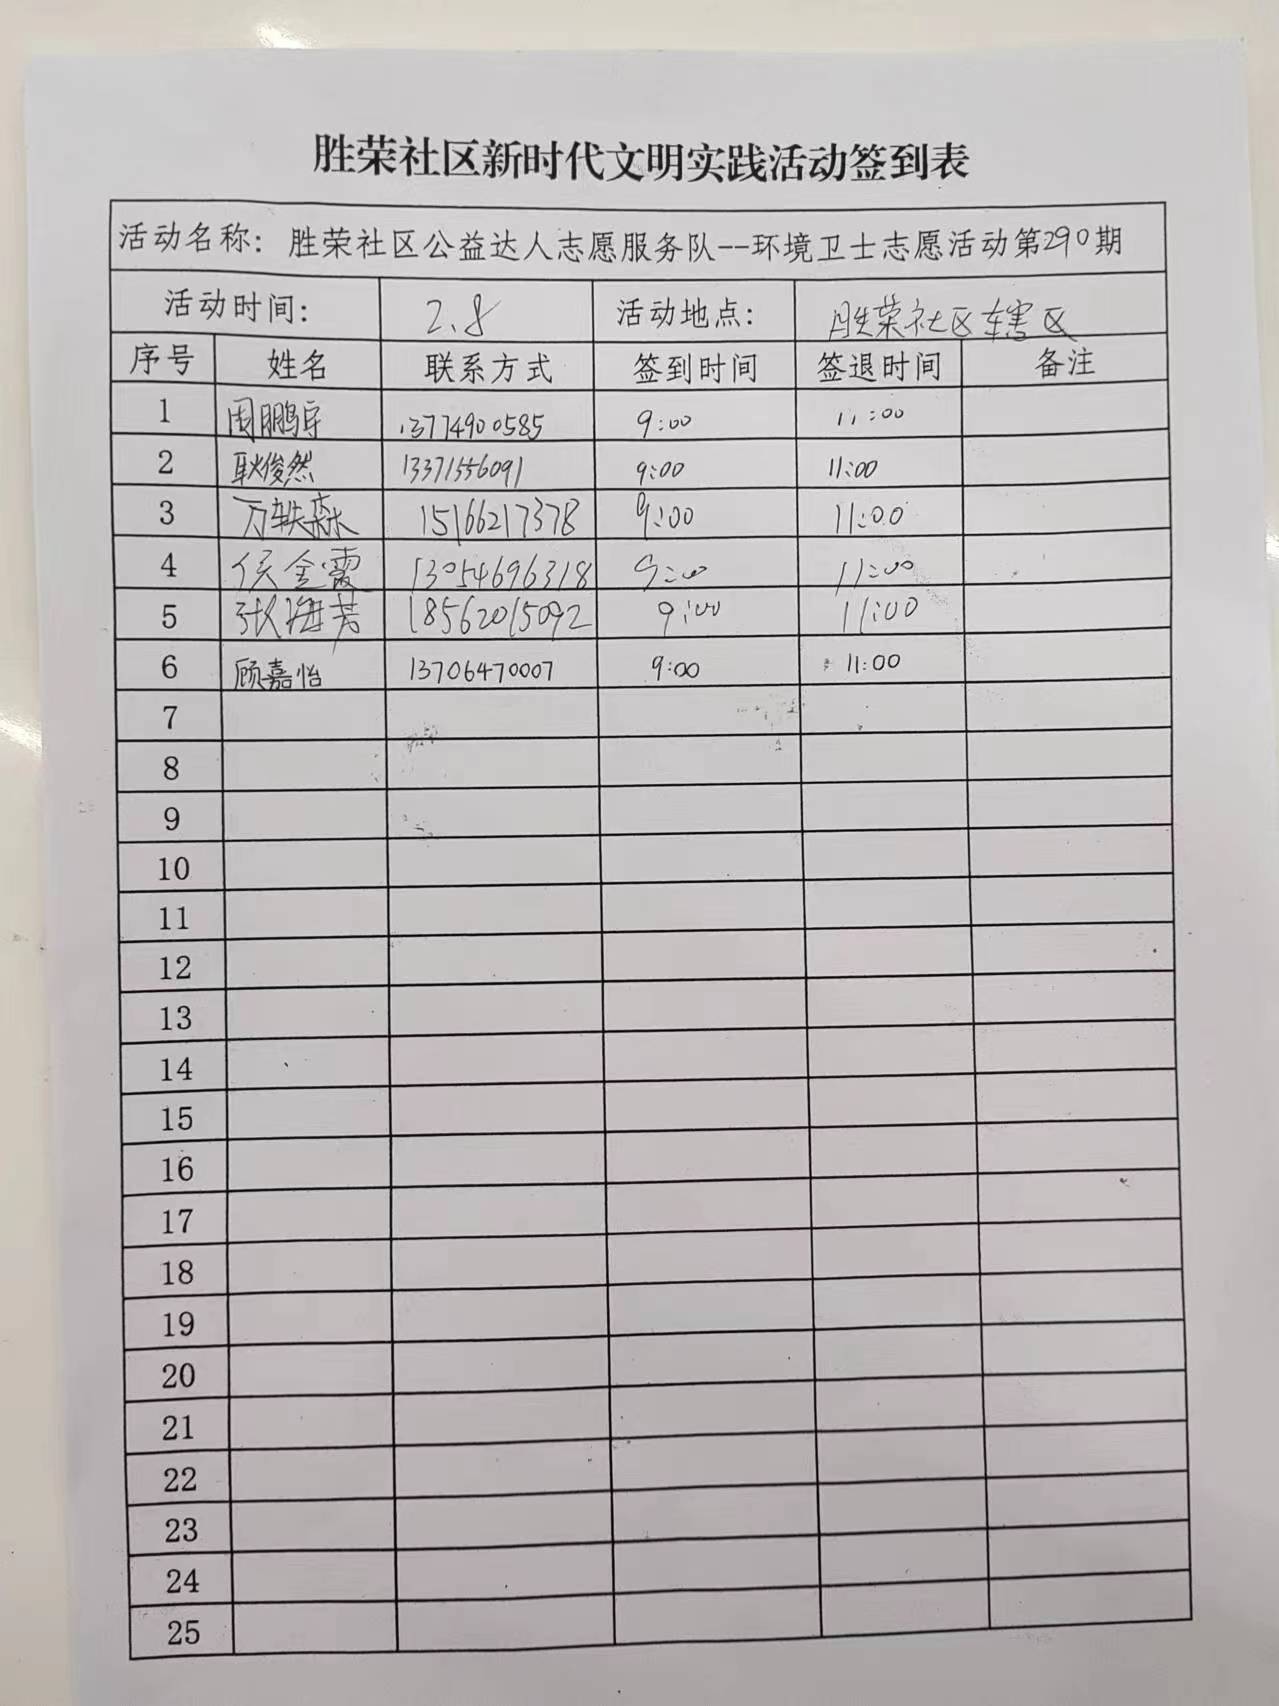 胜荣社区新时代文明实践活动签到表
活动名称：胜荣社区公益达人志愿服务队--环境卫士志愿活动第290期
活动时间： 2.8 活动地点： 胜荣社区辖区
序号 姓名 联系方式 签到时间 签退时间 备注
1 周鹏宇 13774900585 9:00 11:00
2 耿俊然 13371556091 9:00 11:00
3 万轶森 15166217378 9:00 11:00
4 侯金霞 13054696318 9:00 11:00
5 张海芳 18562015092 9:00 11:00
6 顾嘉怡 13706470007 9:00 11:00
7
8
9
10
11
12
13
14
15
16
17
18
19
20
21
22
23
24
25